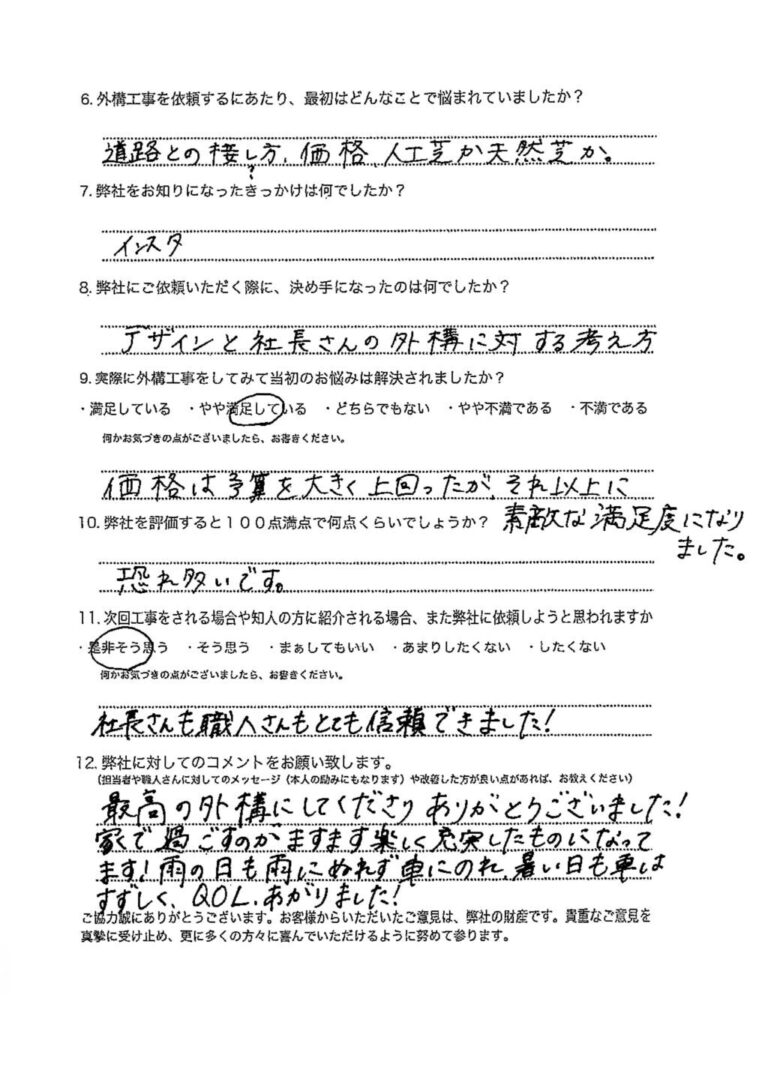 6. 外構工事を依頼するにあたり、最初はどんなことで悩まれていましたか?
道路との接し方、価格、人工芝か天然芝か。
7. 弊社をお知りになったきっかけは何でしたか?
インスタ
8. 弊社にご依頼いただく際に、決め手になったのは何でしたか?
デザインと社長さんの外構に対する考え方
9. 実際に外構工事をしてみて当初のお悩みは解決されましたか?
・満足している ・やや満足している ・どちらでもない ・やや不満である ・不満である
何かお気づきの点がございましたら、お書きください。
価格は予算を大きく上回ったが、それ以上に
素敵な満足度になり
ました。
10. 弊社を評価すると100点満点で何点くらいでしょうか?
恐れ多いです。
11. 次回工事をされる場合や知人の方に紹介される場合、また弊社に依頼しようと思われますか
・是非そう思う ・そう思う ・まぁしてもいい ・あまりしたくない ・したくない
何かお気づきの点がございましたら、お書きください。
社長さんも職人さんもとても信頼できました!
12. 弊社に対してのコメントをお願い致します。
(担当者や職人さんに対してのメッセージ(本人の励みにもなります)や改善した方が良い点があれば、お教えください)
最高の外構にしてくださりありがとうございました!
家で過ごすのがますます楽しく充実したものになって
ます!雨の日も雨にぬれず車にのれ、暑い日も車は
すずしく、QOL、あがりました!
ご協力誠にありがとうございます。お客様からいただいたご意見は、弊社の財産です。貴重なご意見を
真摯に受け止め、更に多くの方々に喜んでいただけるように努めて参ります。